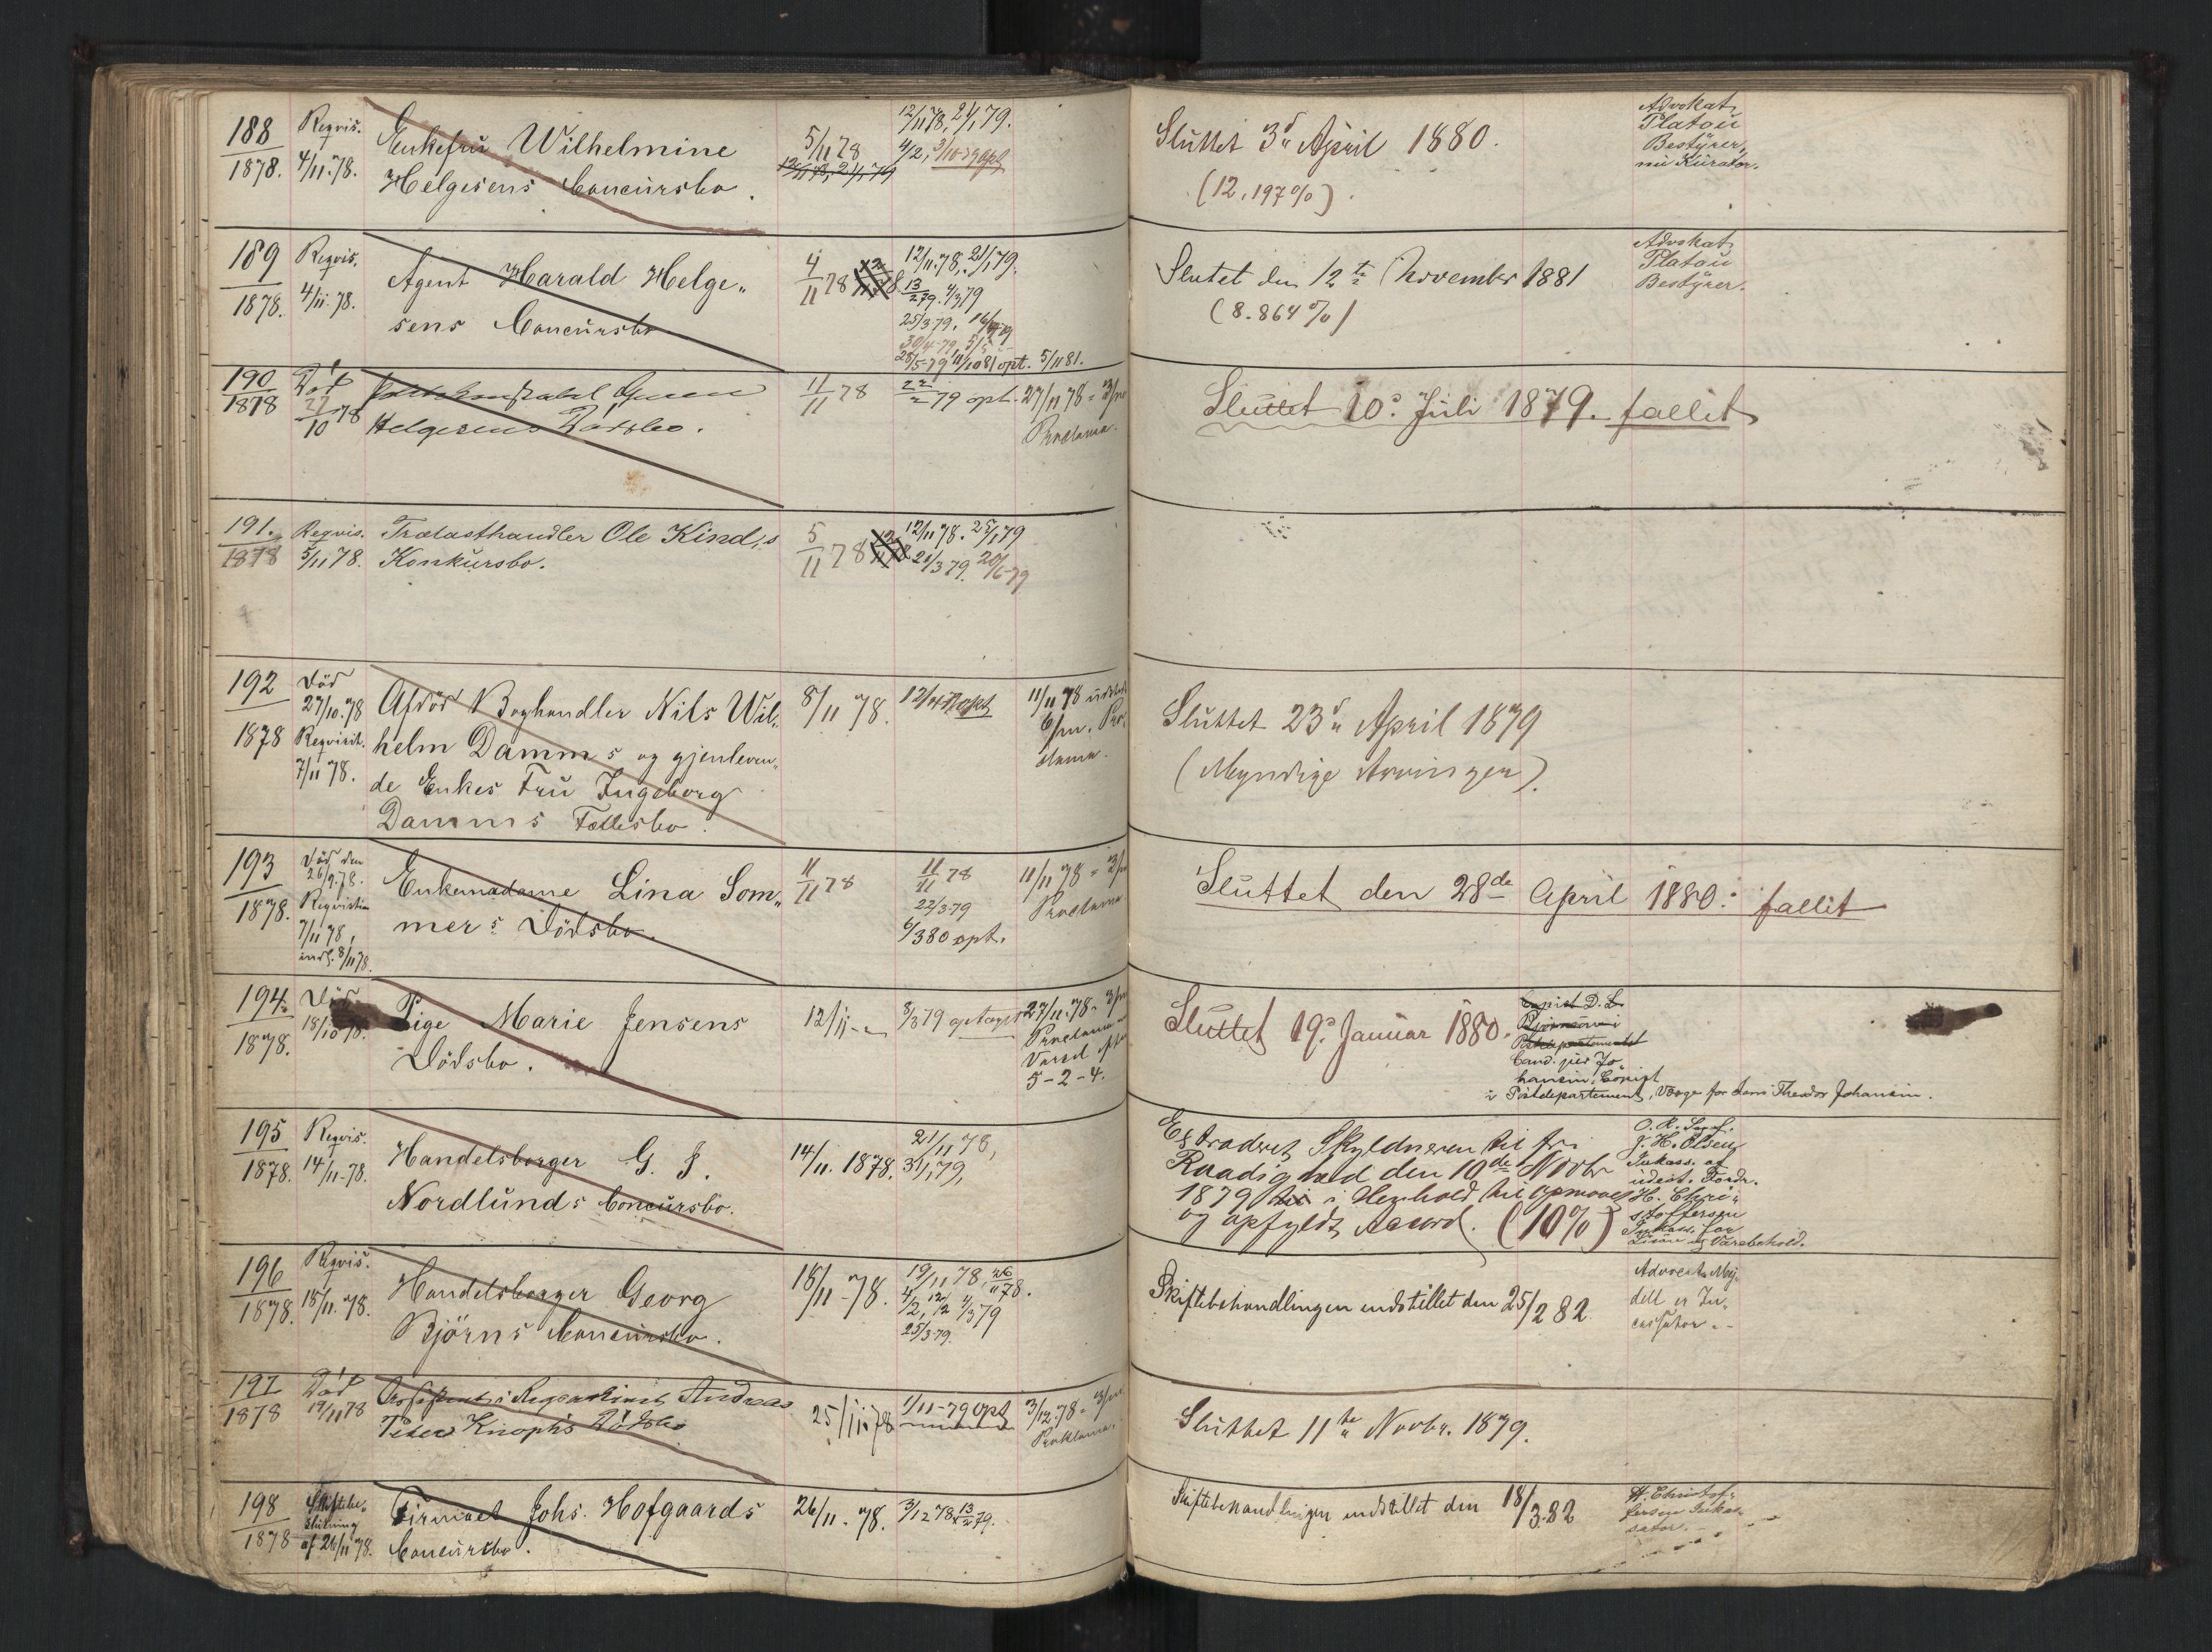 188
1878.
Reqvis.
4/11.78.
Enkefru Wilhelmine
Helgesens Concursbo.
5/11 78
12/11 78, 21/1 79
12/11 78, 21/1 79.
4/2, 3/10-79 opt
Sluttet 3d April 1880.
(12,197%).
Advokat
Platou
Bestyrer,
nu Kurator.
189
1878.
Reqvis.
4/11.78.
Agent Harald Helge„
sens Concursbo
4/11 78
12/11 78
12/11.78, 21/1 79.
13/2 79. 4/3 79
25/3 79.
30/4-79
28/5-79 11/10 81 opt. 5/11 81.
Slutet den 12te November 1881
(8.864%)
Advokat
Platou
Bestyrer.
190
1878
Död
27/10 78
Helgesens Dödsbo.
11/11 78
22/2 79 opt.
27/11 78 = 3/m
Proclama.
Sluttet 10. Juli 1879. fallit
191.
1878
Reqvis.
5/11 78.
Trælasthandler Ole Kind's
Konkursbo.
5/11 78
12/11 78
12/11 78. 25/1 79
21/3 79. 20/6-79
192
1878
Död
27/10.78
Reqvirit.
7/11 78.
Afdöd Boghandler Nils Wil„
helm Damms og gjenleven„
de Enkes Fru Ingeborg
Damms Fællesbo.
8/11 78.
12/4 79 opt
11/11 78
6/m. Pro„
clama.
Sluttet 23d April 1879
(Myndige Arvinger).
193
1878.
Död den
26/9.78.
Reqvisition
7/11 78,
indl. 8/11 78.
Enkemadame Lina Som„
mers Dödsbo.
11/11 78
11/11 78
22/3 79
6/3 80 opt.
11/11 78 = 3/m
Proclama
Sluttet den 28de April 1880. fallit
194.
1878.
Död
18/10 78.
Pige Marie Jensens
Dödsbo.
12/11
8/3 79 optaget
27/11.78 = 3/m
Proclama
Varsel
5-2-4.
Sluttet 19. Januar 1880.
Copist D. L.
Postdepartementet
Cand. jur Jo„
hansen, Copist
i Postdepartement, Værge for Jens Theodor Johansen.
195
1878.
Reqvis.
14/11-78.
Handelsborger G. J.
Nordlunds Concursbo.
14/11. 1878.
21/11 78,
31/1 79,
Extraderet Skyldneren til fri
Raadighed den 10de Novbr
1879 i Henhold til opnaaet
og opfyldt Accord. (10%)
O. R. Sagf.
J. H. Olsen
Inkass. af
udest. Fordr.
H. Chri„
stoffersen
Inkass. for
og Varebehold.
196
1878.
Reqvis.
18/11.78.
Handelsborger Georg
Björns Concursbo.
18/11-78.
19/11 78, 26/11 78.
4/2, 12/2 4/3 79
25/3 79.
Skiftebehandlingen indstillet den 25/2 82
Advocat Mey„
dell er In„
cassator.
197
1878
Död
19/11 78
Andreas
Peter Knophs Dödsbo
25/11.78
1/11-79 opt
3/12.78 = 3/m
Proklama.
Sluttet 11te Novbr. 1879.
198
1878
Skiftebe„
slutning
af 26/11 78.
Firmaet Johs. Hofgaards
Concursbo.
26/11. 78.
3/12 78, 13/2 79.
Skiftebehandlingen indstillet den 18/3.82
H. Christof„
fersen Inkas„
sator.